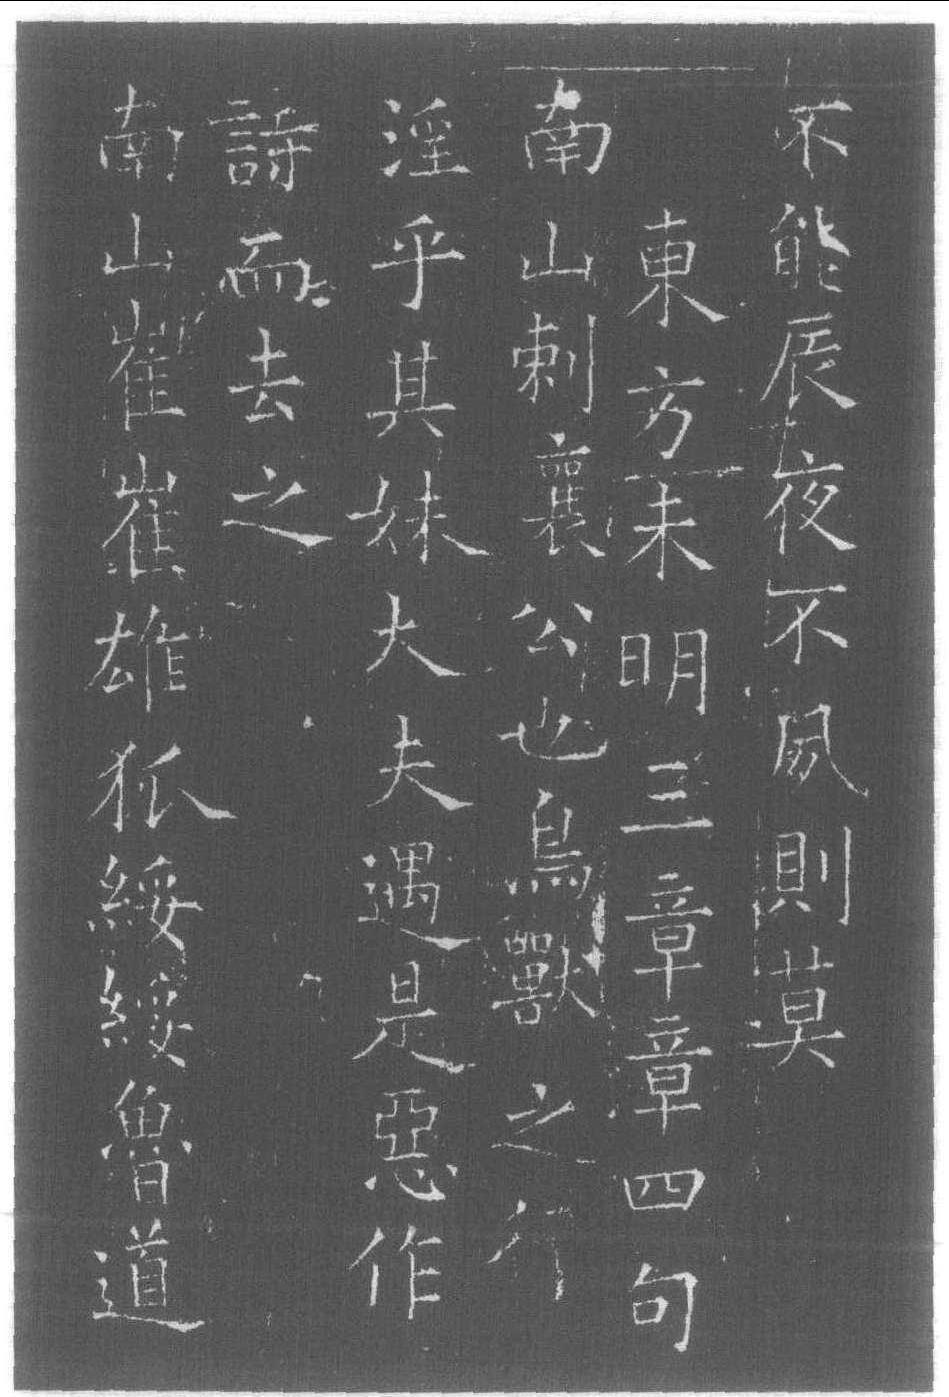 不能辰夜不夙則莫
東方未明三章章四句
南山刺襄公也鳥獸之行
淫乎其妹大夫遇是惡作
詩而去之
南山崔崔雄狐綏綏魯道